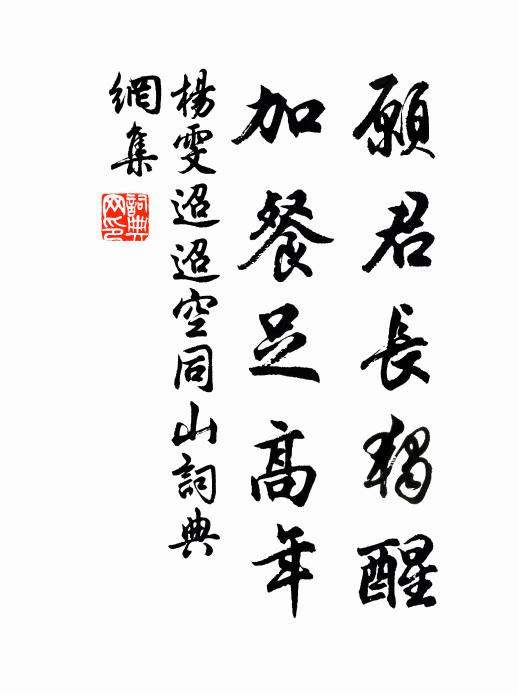 願君長獨醒
加餐足高年
楊雯迢迢空同山詞典
網集
詞典
网印